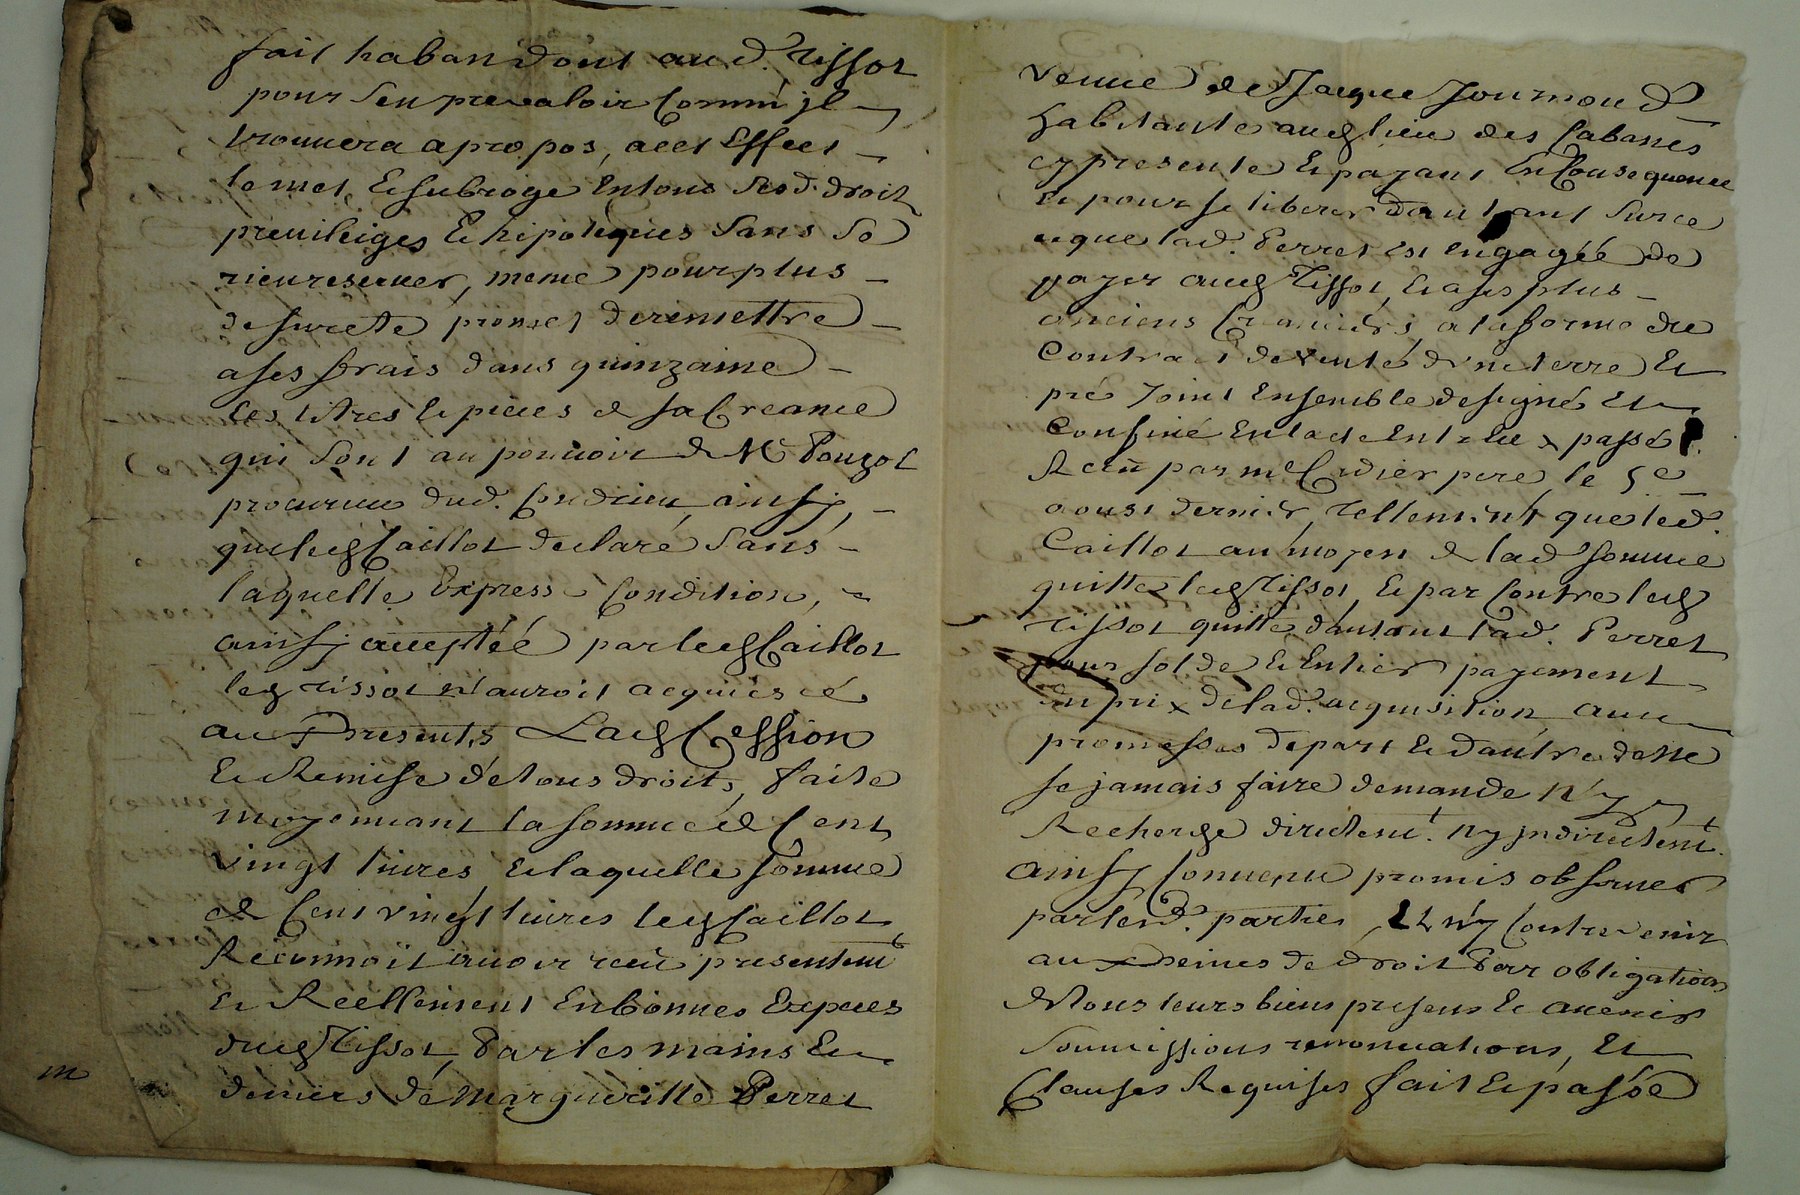 fait habandont aud. Tissot
pour sen prevaloir Comme jl
trouvera apropos, acet Effect
le met, Et subroge Entous sesd. droit
previleiges Et hipoteques Sans So
rien reserver, meme pour plus
de surete promet deremettre
ases frais dans quinzaine
Les titres Et pieces de sa Creance
qui sont au pouvoir de Me Pouzol
procureur dud. Condrieu, ainsy,
que led Caillot declare Sans
laquelle Expresse Condition,
ainsy acceptéé par led Caillot
led Tissot n'auroit acquiescé
aux Presentes Lad Cession
Et Remise de tous droits, faite
moyennant la somme de Cent
vingt livres Et laquelle somme
de Cent vingt livres led Caillot
Reconnoit avoir receu presentemt
Et Reellement En bonnes Especes
dud Tissot, Par les mains Et
deniers de Margueritte Perret
veuve de Jacque Journoud
habitante aud lieu des Cabanes
cy presente Et payant En Consequence
Et pour se liberer dautant Surce
aque lad. Perret est engagéé de
payer aud Tissot, Et ases plus
anciens Creanciers a la forme du
Contract de vente dune terre Et
pré Joint Ensemble designé Et
Confiné En lacte Entre Eux passé
Receu par me Cudier pere le 5e
aoust dernier, tellement que led
Caillot au moyen de lad somme
quitte led Tissot, Et par Contre led
Tissot quitte dautant lad. Perret
pour solde Et Entier payement
du prix de lad. acquisition avec
promesses de part Et dautre de ne
se jamais faire demande n'y
Recherge directemt. ny jndirectemt.
ainsy Convenu promis observer
par lesd. parties, Et n'y Contrevenir
aux Peines de droit Par obligation
de tous leurs biens presens Et avenir
Soumissions renonciations, Et
Clauses Requises fait Et passée